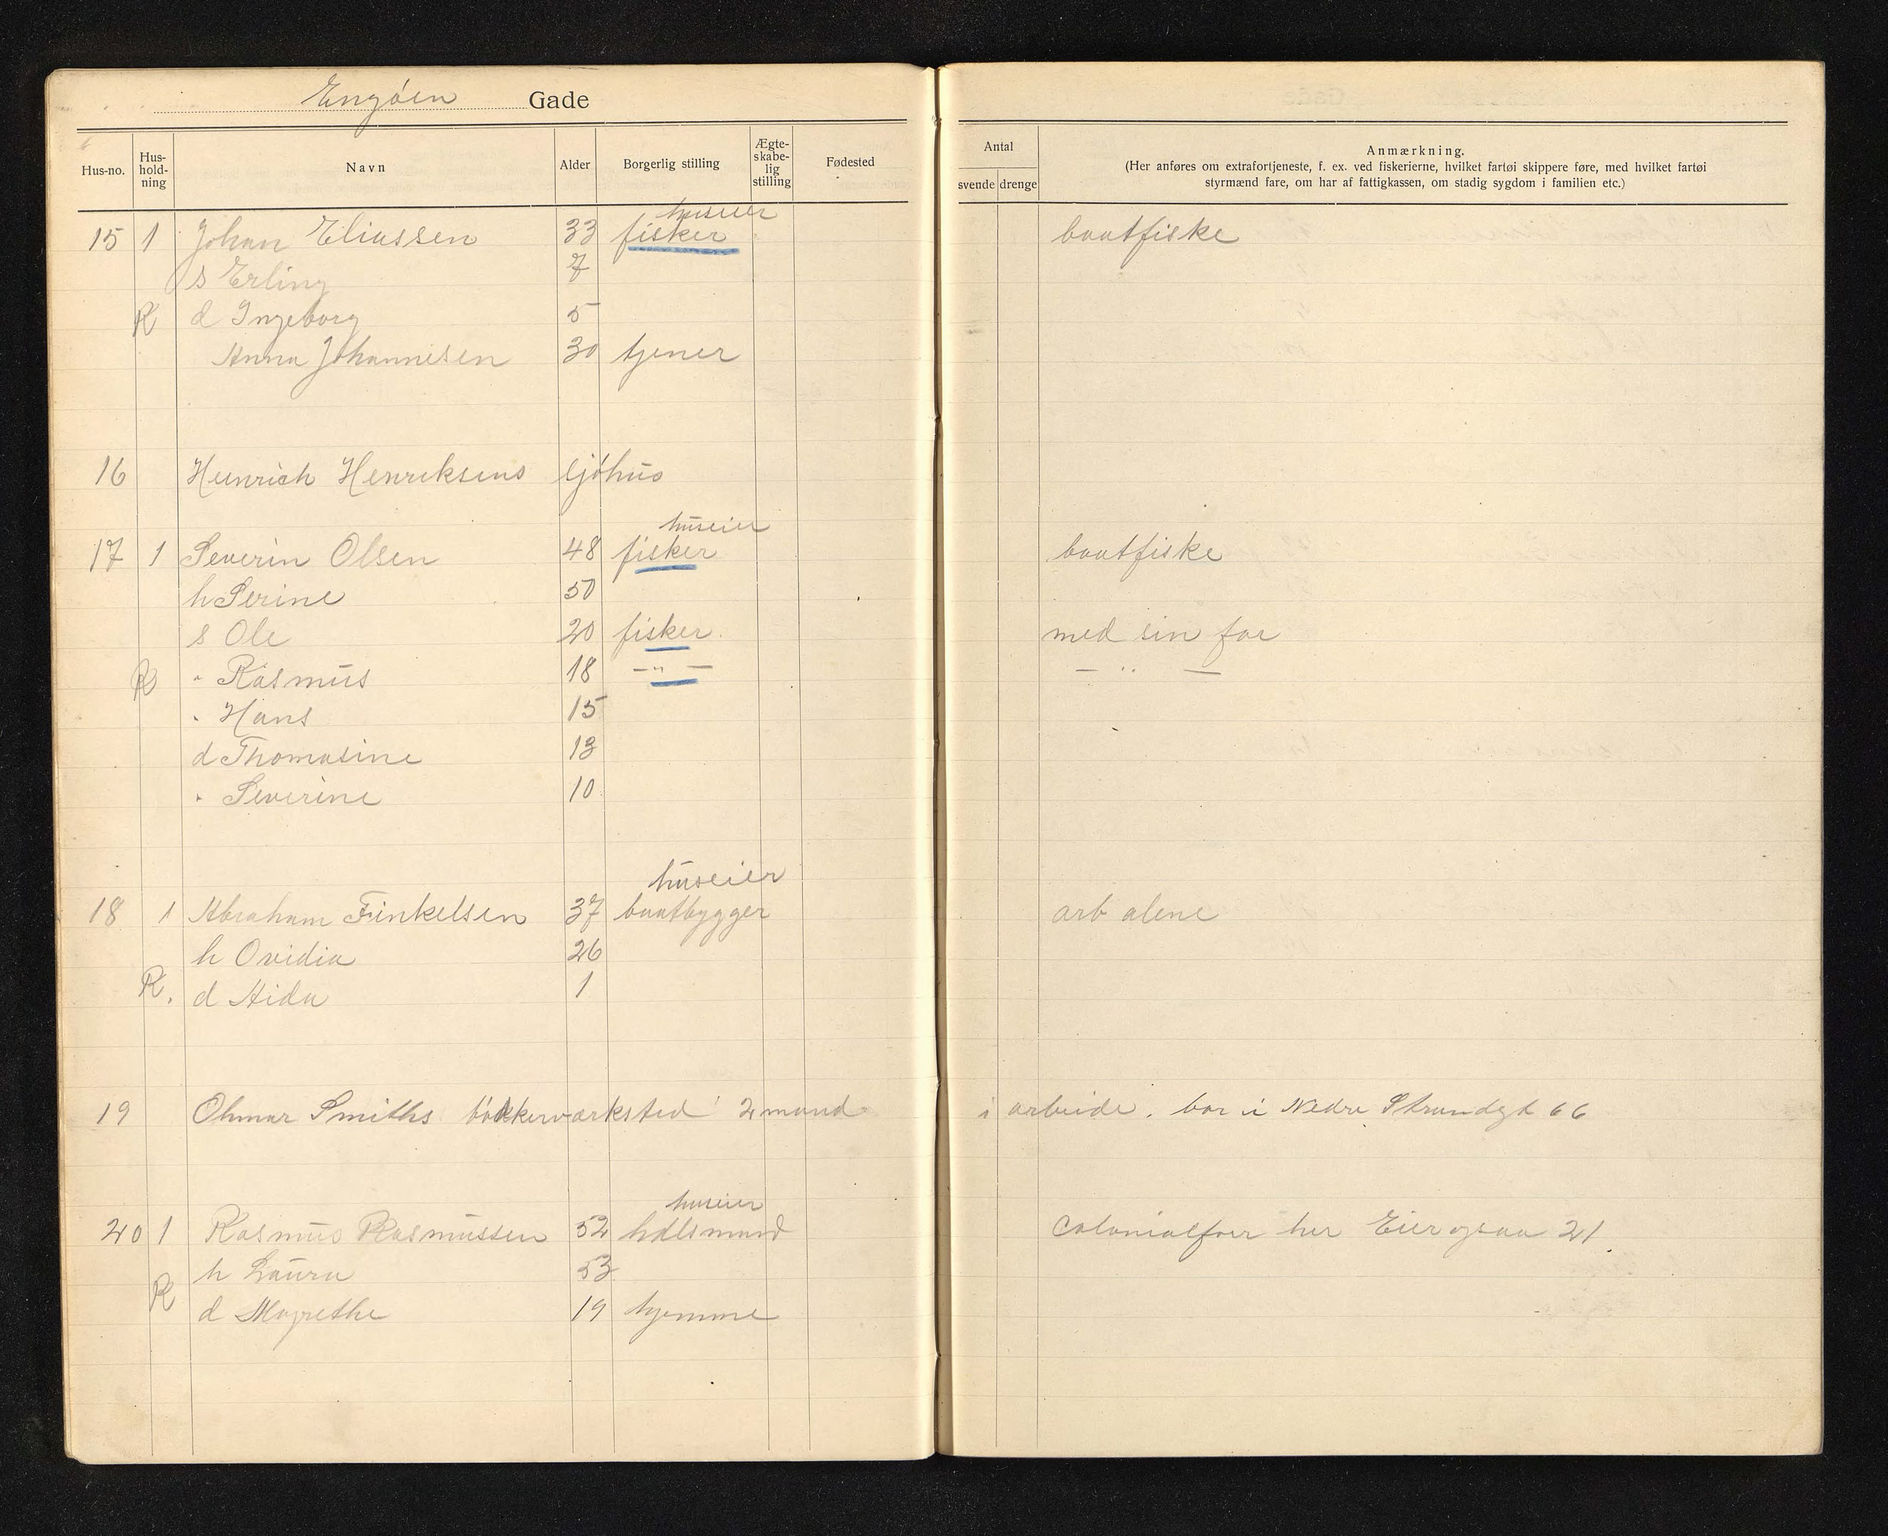 Engøen Gade
Hus-no. Hus-hold-ning Navn Alder Borgerlig stilling Ægte-skabe-lig stilling Fødested Antal svende drenge Anmærkning.
(Her anføres om extrafortjeneste, f. ex. ved fiskerierne, hvilket fartøi skippere føre, med hvilket fartøi
styrmænd fare, om har af fattigkassen, om stadig sygdom i familien etc.)
huseier
15 1 Johan Eliassen 33 fisker baatfiske
s Erling 7
R d Ingeborg 5
Anna Johannesen 30 tjener
16 Heinrich Henriksens sjøhus
huseier
17 1 Severin Olsen 48 fisker baatfiske
h Serine 50
s Ole 20 fisker med sin far
R " Rasmus 18 — " — — " —
" Hans 15
d Thomasine 13
" Severine 10
huseier
18 1 Abraham Finkelsen 37 baatbygger arb alene
h Ovidia 26
R. d Aida 1
19 Ohmar Smiths bøkkerværksted 2 mand i arbeide. bor i Nedre Strandgt 66
huseier
20 1 Rasmus Rasmussen 52 hdlsmand colonialforr her Eier ogsaa 21
h Laura 53
R d Magrethe 19 hjemme